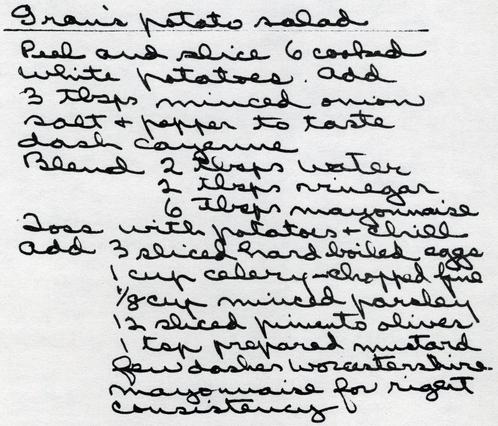 Gran's potato salad
Peel and slice 6 cooked
white potatoes. Add
3 tbsps minced onion
salt + pepper to taste
dash cayenne
Blend 2 tbsps water
2 tbsps vinegar
6 tbsps mayonnaise
Toss with potatoes + chill
Add 3 sliced hard boiled eggs
1 cup celery - chopped fine
1/8 cup minced parsley
12 sliced pimento olives
1 tsp prepared mustard
few dashes worcestershire
mayonnaise for right
consistency